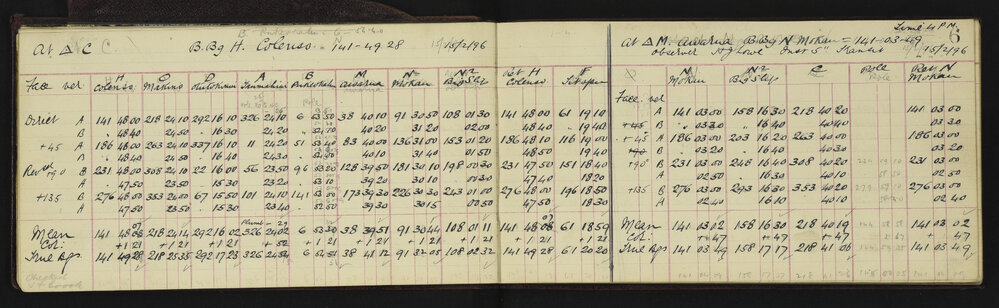 At △ C B. Bg H. Colenso = 141-49 28 15/2/96
H C D A B M N N² Ret H F
Face ver Colenso Makino Austria Mokau Bg Slip Colenso
Direct A 141 48 00 218 24 10 292 16 10 326 24 10 6 53 50 38 40 10 91 30 50 108 01 30 141 48 00 61 19 10
B 48 40 24 50 16 30 24 20 52 50 40 20 31 20 02 00 48 40 19 40
+45 A 186 48 00 263 24 10 337 16 10 11 24 20 51 53 40 83 40 00 136 31 00 153 01 20 186 48 10 116 19 00
B 48 40 24 50 16 30 24 30 40 10 31 40 01 50 48 50 19 40
Revsd +90 B 231 48 00 308 24 10 22 16 00 56 23 50 96 53 20 128 39 50 181 30 10 198 00 30 231 47 50 151 18 40
A 47 50 23 50 15 30 23 20 53 10 39 20 30 10 00 30 47 40 18 20
+135 B 276 48 00 353 24 00 67 15 50 101 24 10 141 53 00 173 39 30 226 30 30 243 01 00 276 48 00 196 18 50
A 47 50 23 50 15 30 23 40 52 50 39 30 30 15 00 50 47 50 18 30
Mean 141 48 07 218 24 14 292 16 02 326 24 02 6 53 30 38 39 51 91 30 44 108 01 11 141 48 08 61 18 59
Cor: +1 21 +1 21 +1 21 + 52 + 1 21 + 1 21 + 1 21 + 1 21 + 1 21 + 1 21
True Bgs. 141 49 28 218 25 35 292 17 23 326 24 54 6 54 51 38 41 12 91 32 05 108 02 32 141 49 28 61 20 20
Time 4 P.M.
6
At △ M. Austria B. Bg N Mokau = 141-03-49
observer H J Lowe Inst 5" 15/2/96
N N² C Pole Ray N
Mokau Bg Slip Pole Mokau
Face ver
A 141 03 00 158 16 30 218 40 20 141 03 00
B 03 30 16 40 40 30 03 30
+45 A 186 03 00 203 16 20 263 40 00 186 03 00
B 03 20 16 40 40 30 03 20
+90 B 231 03 00 248 16 40 308 40 20 231 03 00
A 02 50 16 30 40 10 02 50
+135 B 276 03 00 293 16 30 353 40 20 276 03 00
A 02 40 16 10 40 10 02 40
Mean 141 03 02 158 16 30 218 40 19 141 03 02
Cor: + 47 + 47 + 47 + 47
True Bgs 141 03 49 158 17 17 218 41 06 141 03 49